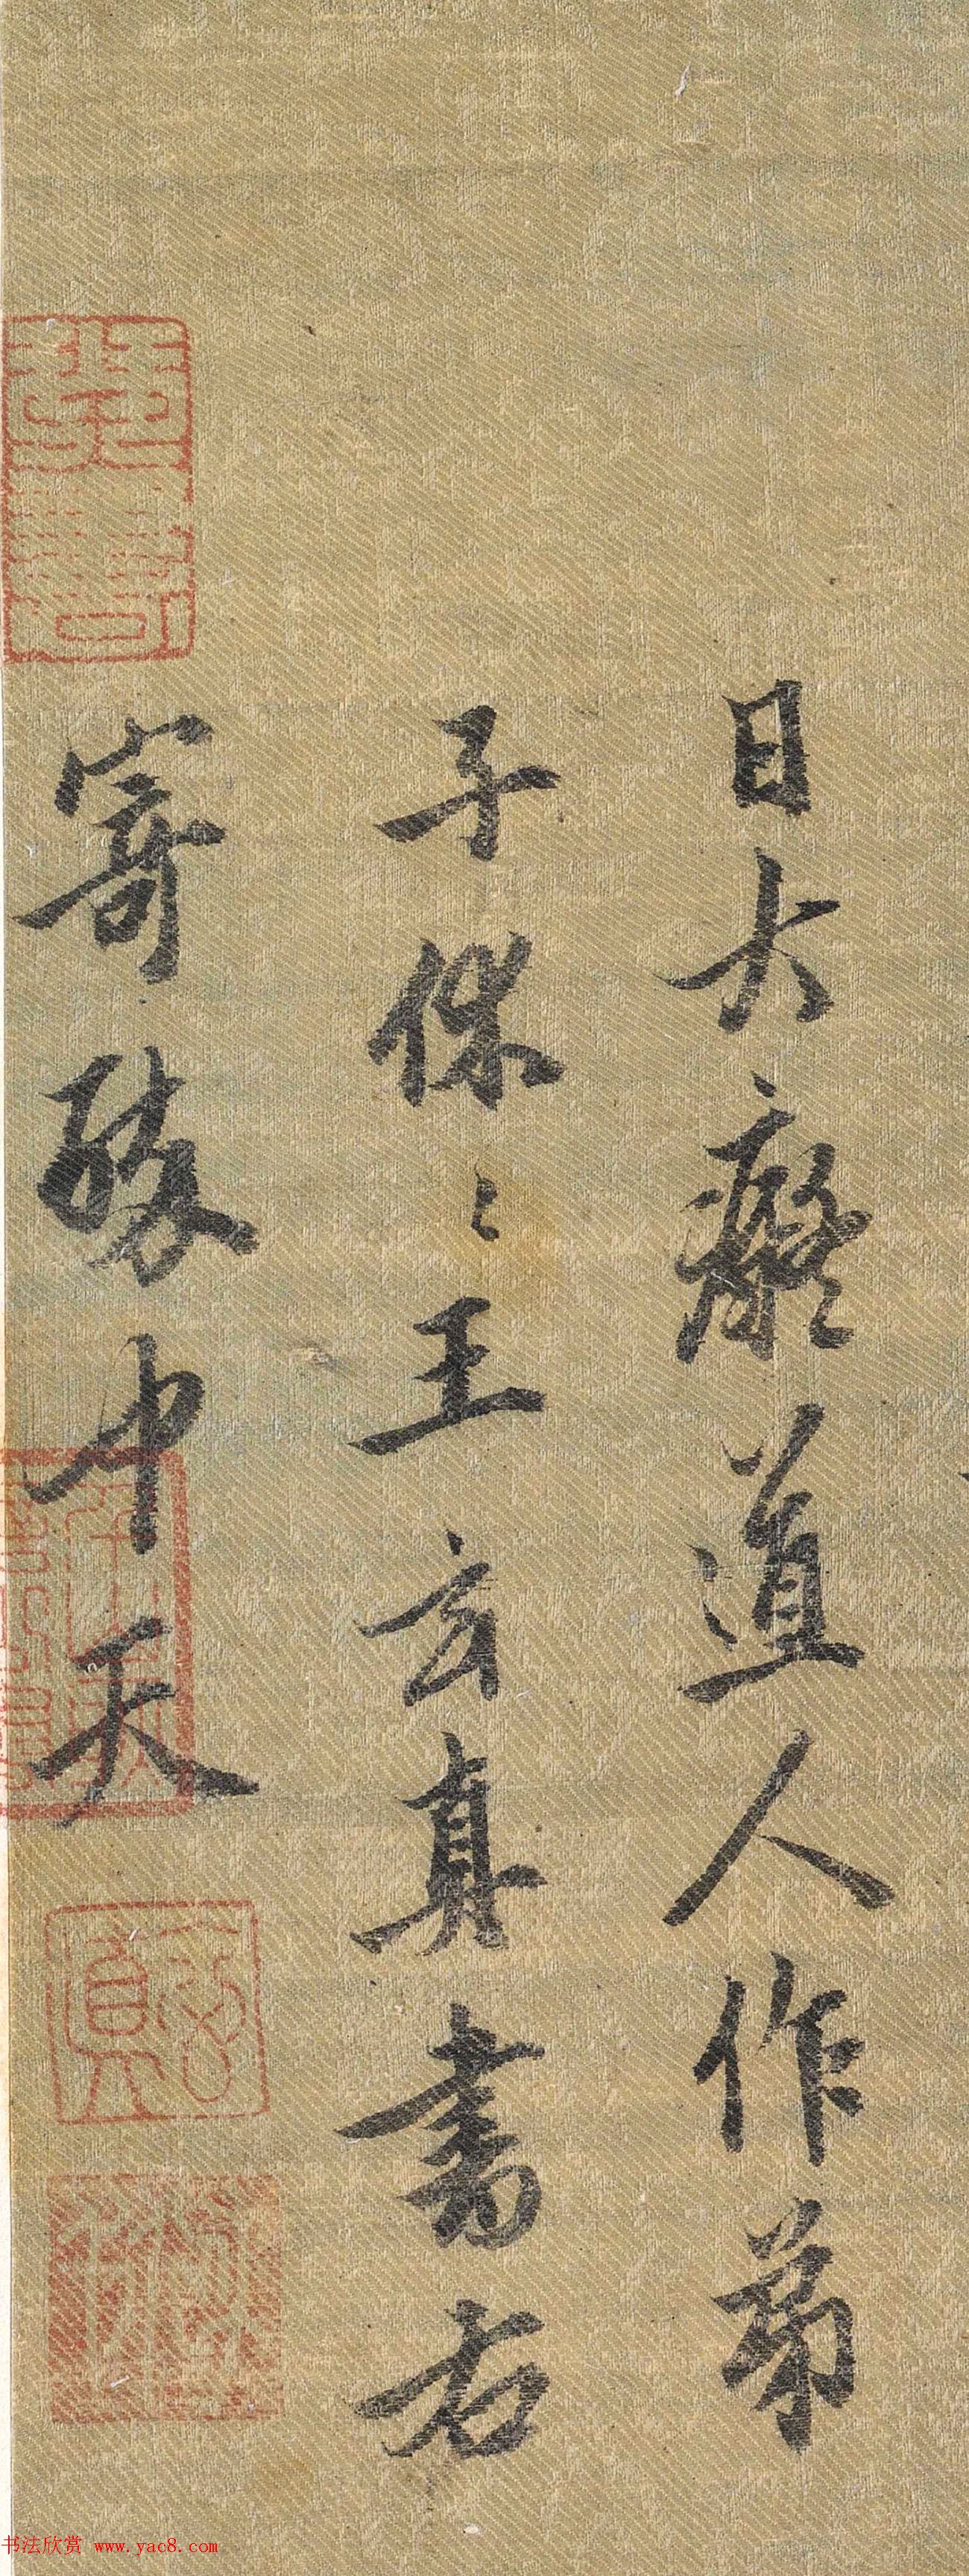 日大癡道人作弟
子保々王玄真書右
寄醉中天
书法欣赏 www.yac8.com